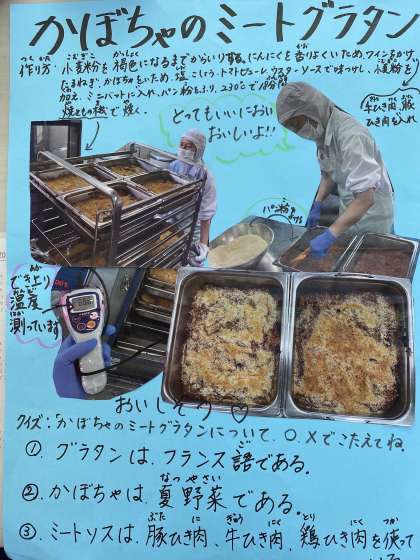 かぼちゃのミートグラタン
作り方: 小麦粉を褐色になるまでからいりする。にんにくを香りよくいため、ワインをかけ
たまねぎ、かぼちゃもいため、塩、こしょう、トマトピューレ、ウスターソースで味つけし、小麦粉を
加え、ミニバットに入れ、パン粉をふり、230℃で18分間
焼きもの機で焼く。
牛ひき肉、豚
ひき肉を入れ
とってもいいにおい
おいしいよ!!
パン粉を
かける
でき上り
温度
測っています
おいしそう♡
クイズ:「かぼちゃのミートグラタンについて、○、×でこたえてね。
①. グラタンは、フランス語である。
②. かぼちゃは、夏野菜である
③. ミートソースは、豚ひき肉、牛ひき肉、鶏ひき肉を使って